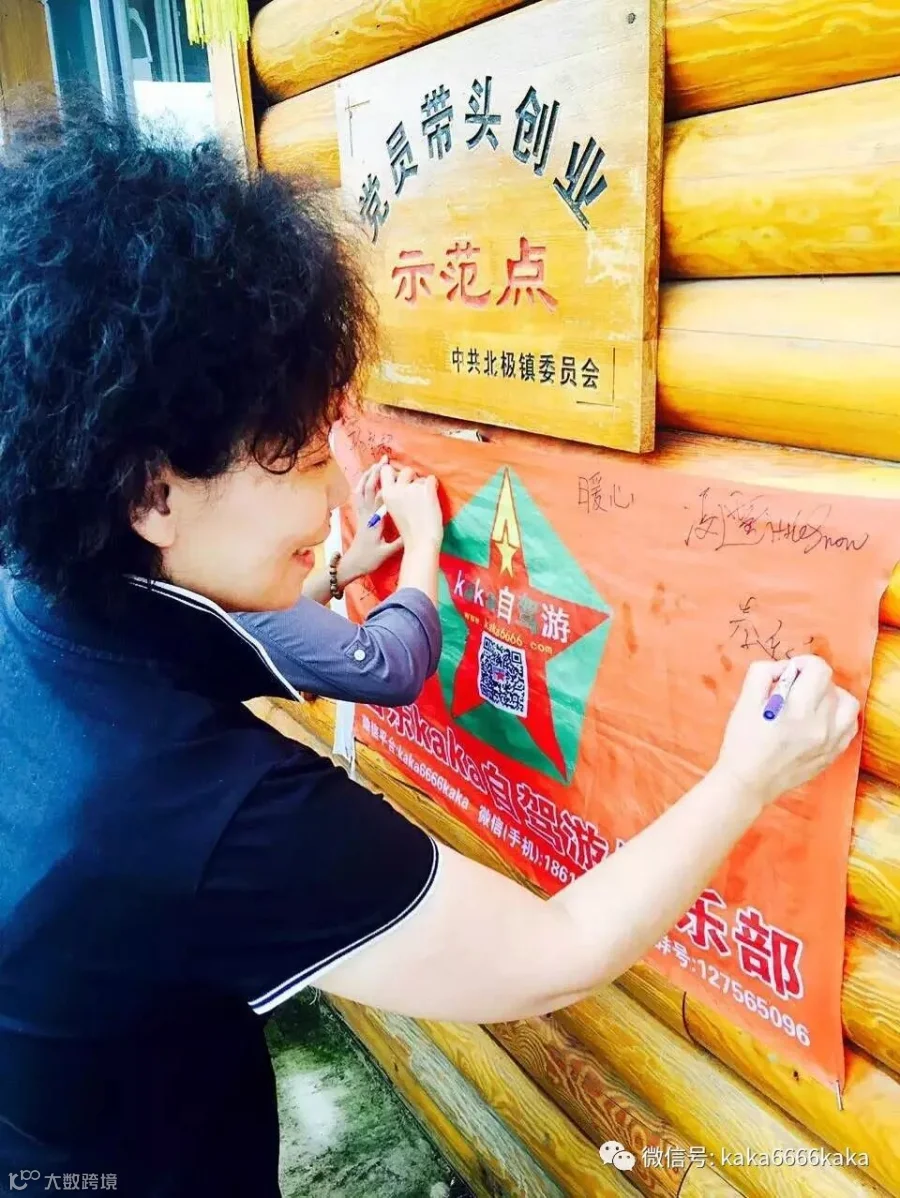 党员带头创业
示范点
中共北极镇委员会
暖心
kaka自驾游
www.kaka6666.com
kaka自驾游
乐部
微信平台:kaka6666kaka 微信(手机):1861
群号:127565096
微信号: kaka6666kaka
大数跨境